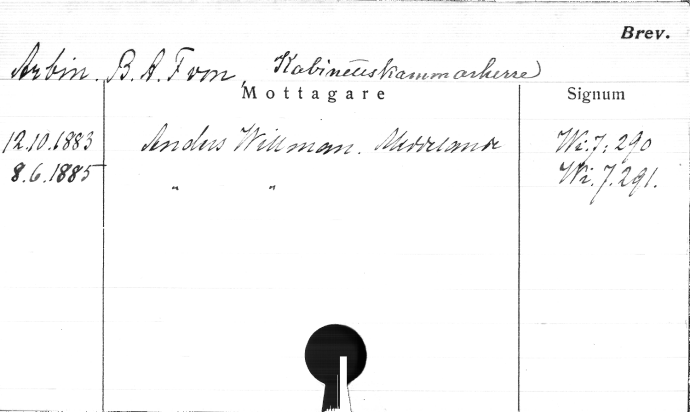 Brev.
Arbin. B. A. F von, Kabinettskammarherre
Mottagare Signum
12.10.1883 Anders Willman. Meddelande Wi. 7: 290
8.6.1885 " " Wi. 7. 291.